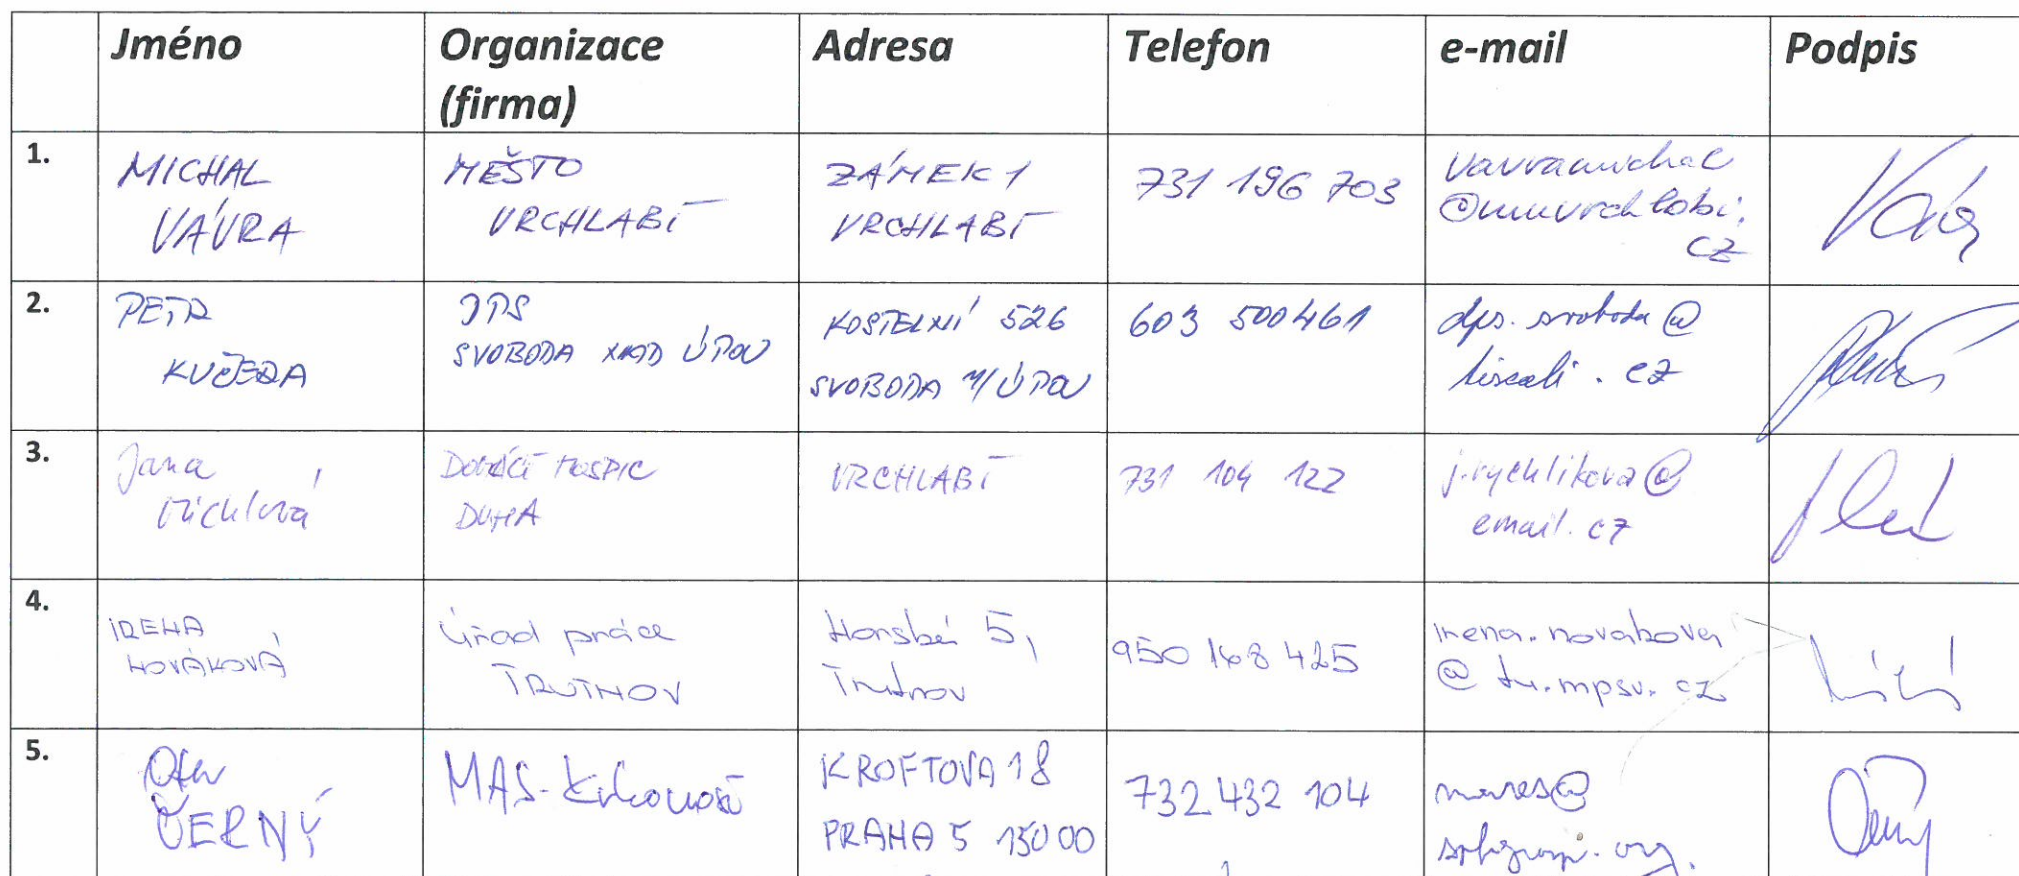 Jméno
Organizace
(firma)
Adresa
Telefon
e-mail
Podpis
1.
MICHAL
VÁVRA
MĚSTO
VRCHLABÍ
ZÁMEK 1
VRCHLABÍ
731 196 703
vavramichal
@muvrchlabi.
cz
2.
PETR
KUČERA
DPS
SVOBODA NAD ÚPOU
KOSTELNÍ 526
SVOBODA N/ÚPOU
603 500461
dps.svoboda@
tiscali.cz
3.
Jana
DOMÁCÍ HOSPIC
DUHA
VRCHLABÍ
731 104 122
j.rychlikova@
email.cz
4.
IRENA
NOVÁKOVÁ
Úřad práce
TRUTNOV
Horská 5,
Trutnov
950 168 425
irena.novakova
@tu.mpsv.cz
5.
ČERNÝ
MAS-Krkonoše
KROFTOVA 18
PRAHA 5 15000
732 432 104
mares@